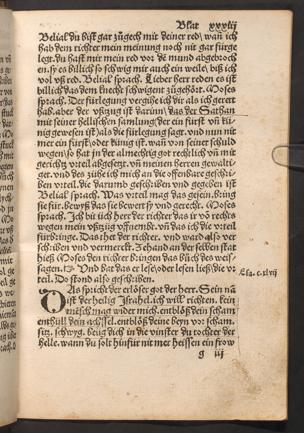 Blat xxxiij
Belial du bist gar zůgech mit deiner red/ wañ ich
hab dem richter mein meinung noch nit gar fürge
legt. du hast mir mein red vor dē mund abgebroch
en. sy es billich so schwig mir auch ein weile/ biß ich
vol vß red. Belial sprach. Lieber herr reden es ist
billich das dem knecht schwigent zůgehört. Moses
sprach. Der fürlegung vergihe ich dir als ich geret
hab. aber der vßzug ist darum/ das der Sathan
mit seiner hellischen samlung der ein fürst vñ kü
nig gewesen ist/ als die fürlegung sagt. vnd nun nit
mer ein fürst/ oder künig ist. wañ von seiner schuld
wegen/ so hat jn der almechtig got rechtlich vñ mit
gerichtz vrteil abgesetzt. vñ meinen herren gewalti
get. vnd des zühe ich mich an die offenbare geschri
ben vrteil. die darumb geschriben vnd gegeben ist
Belial sprach. Was vrteil mag das gesein. bring
sie für. bewyß das sie bewert sy vnd gerecht. Moses
sprach. Ich bit üch herr der richter das ir võ rechts
wegen mein vßzug vffnement. vñ das ich die vrteil
fürbringe. Das thet der richter. vnd ward also ver
schriben vnd vermerckt. Zehand an der selben stat
hieß Moses den richter bringen das bůch des weis/
sagen. Vnd bat das er lese/ oder lesen ließ/ die vr
teil. Do stond also geschriben.
Als spricht der erlöser got der herr. Sein nā
ist der heilig Israhel. ich will richten. kein
mensch mag wider mich. entblöß dein scham
enthüll dein achssel. entblöß deine beyn vor scham.
sitz. schwyg. beig dich in die vinster du tochter der
helle. wann du solt hinfür nit mer heissen ein frow
g iij
Esa. c. xlvij